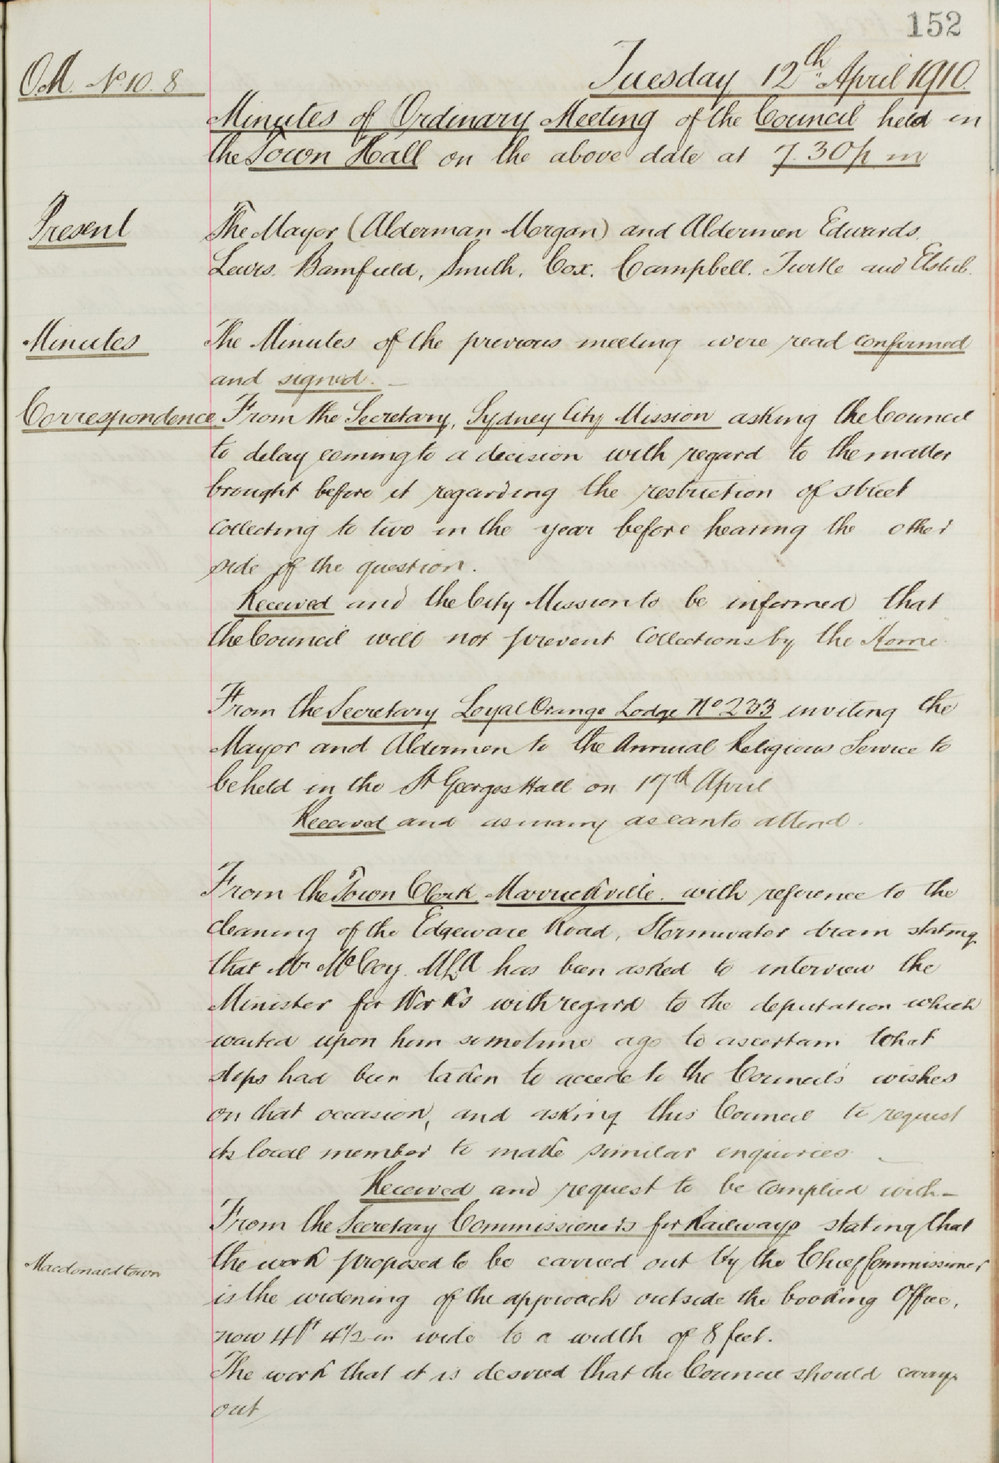 152
O.M. No 10. 8
Tuesday 12th April 1910.
Minutes of Ordinary Meeting of the Council held in
the Town Hall on the above date at 7.30 p m
Present
The Mayor (Alderman Morgan) and Aldermen Edwards,
Lewis, Bamfield, Smith, Cox, Campbell, Turtle and Elstub.
Minutes
The Minutes of the previous meeting were read confirmed
and signed. —
Correspondence
From the Secretary, Sydney City Mission asking the Council
to delay coming to a decision with regard to the matter
brought before it regarding the restriction of street
collecting to two in the year before hearing the other
side of the question.
Received and the City Mission to be informed that
the Council will not prevent Collections by the Home.
From the Secretary Loyal Orange Lodge No 233 inviting the
Mayor and Aldermen to the Annual Religious Service to
be held in the St Georges Hall on 17th April
Received and as many as can to attend.
From the Town Clerk Marrickville. with reference to the
cleaning of the Edgeware Road, Stormwater drain stating
that Mr McCoy MLA has been asked to interview the
Minister for Works with regard to the deputation which
waited upon him sometime ago to ascertain what
steps had been taken to accede to the Council's wishes
on that occasion, and asking this Council to request
its local member to make similar enquiries —
Received and request to be complied with —
From the Secretary Commissioners for Railways stating that
Macdonaldtown
the work proposed to be carried out by the Chief Commissioner
is the widening of the approach outside the booking Office,
now 4ft 4½ in wide to a width of 8 feet.
The work that it is desired that the Council should carry
out